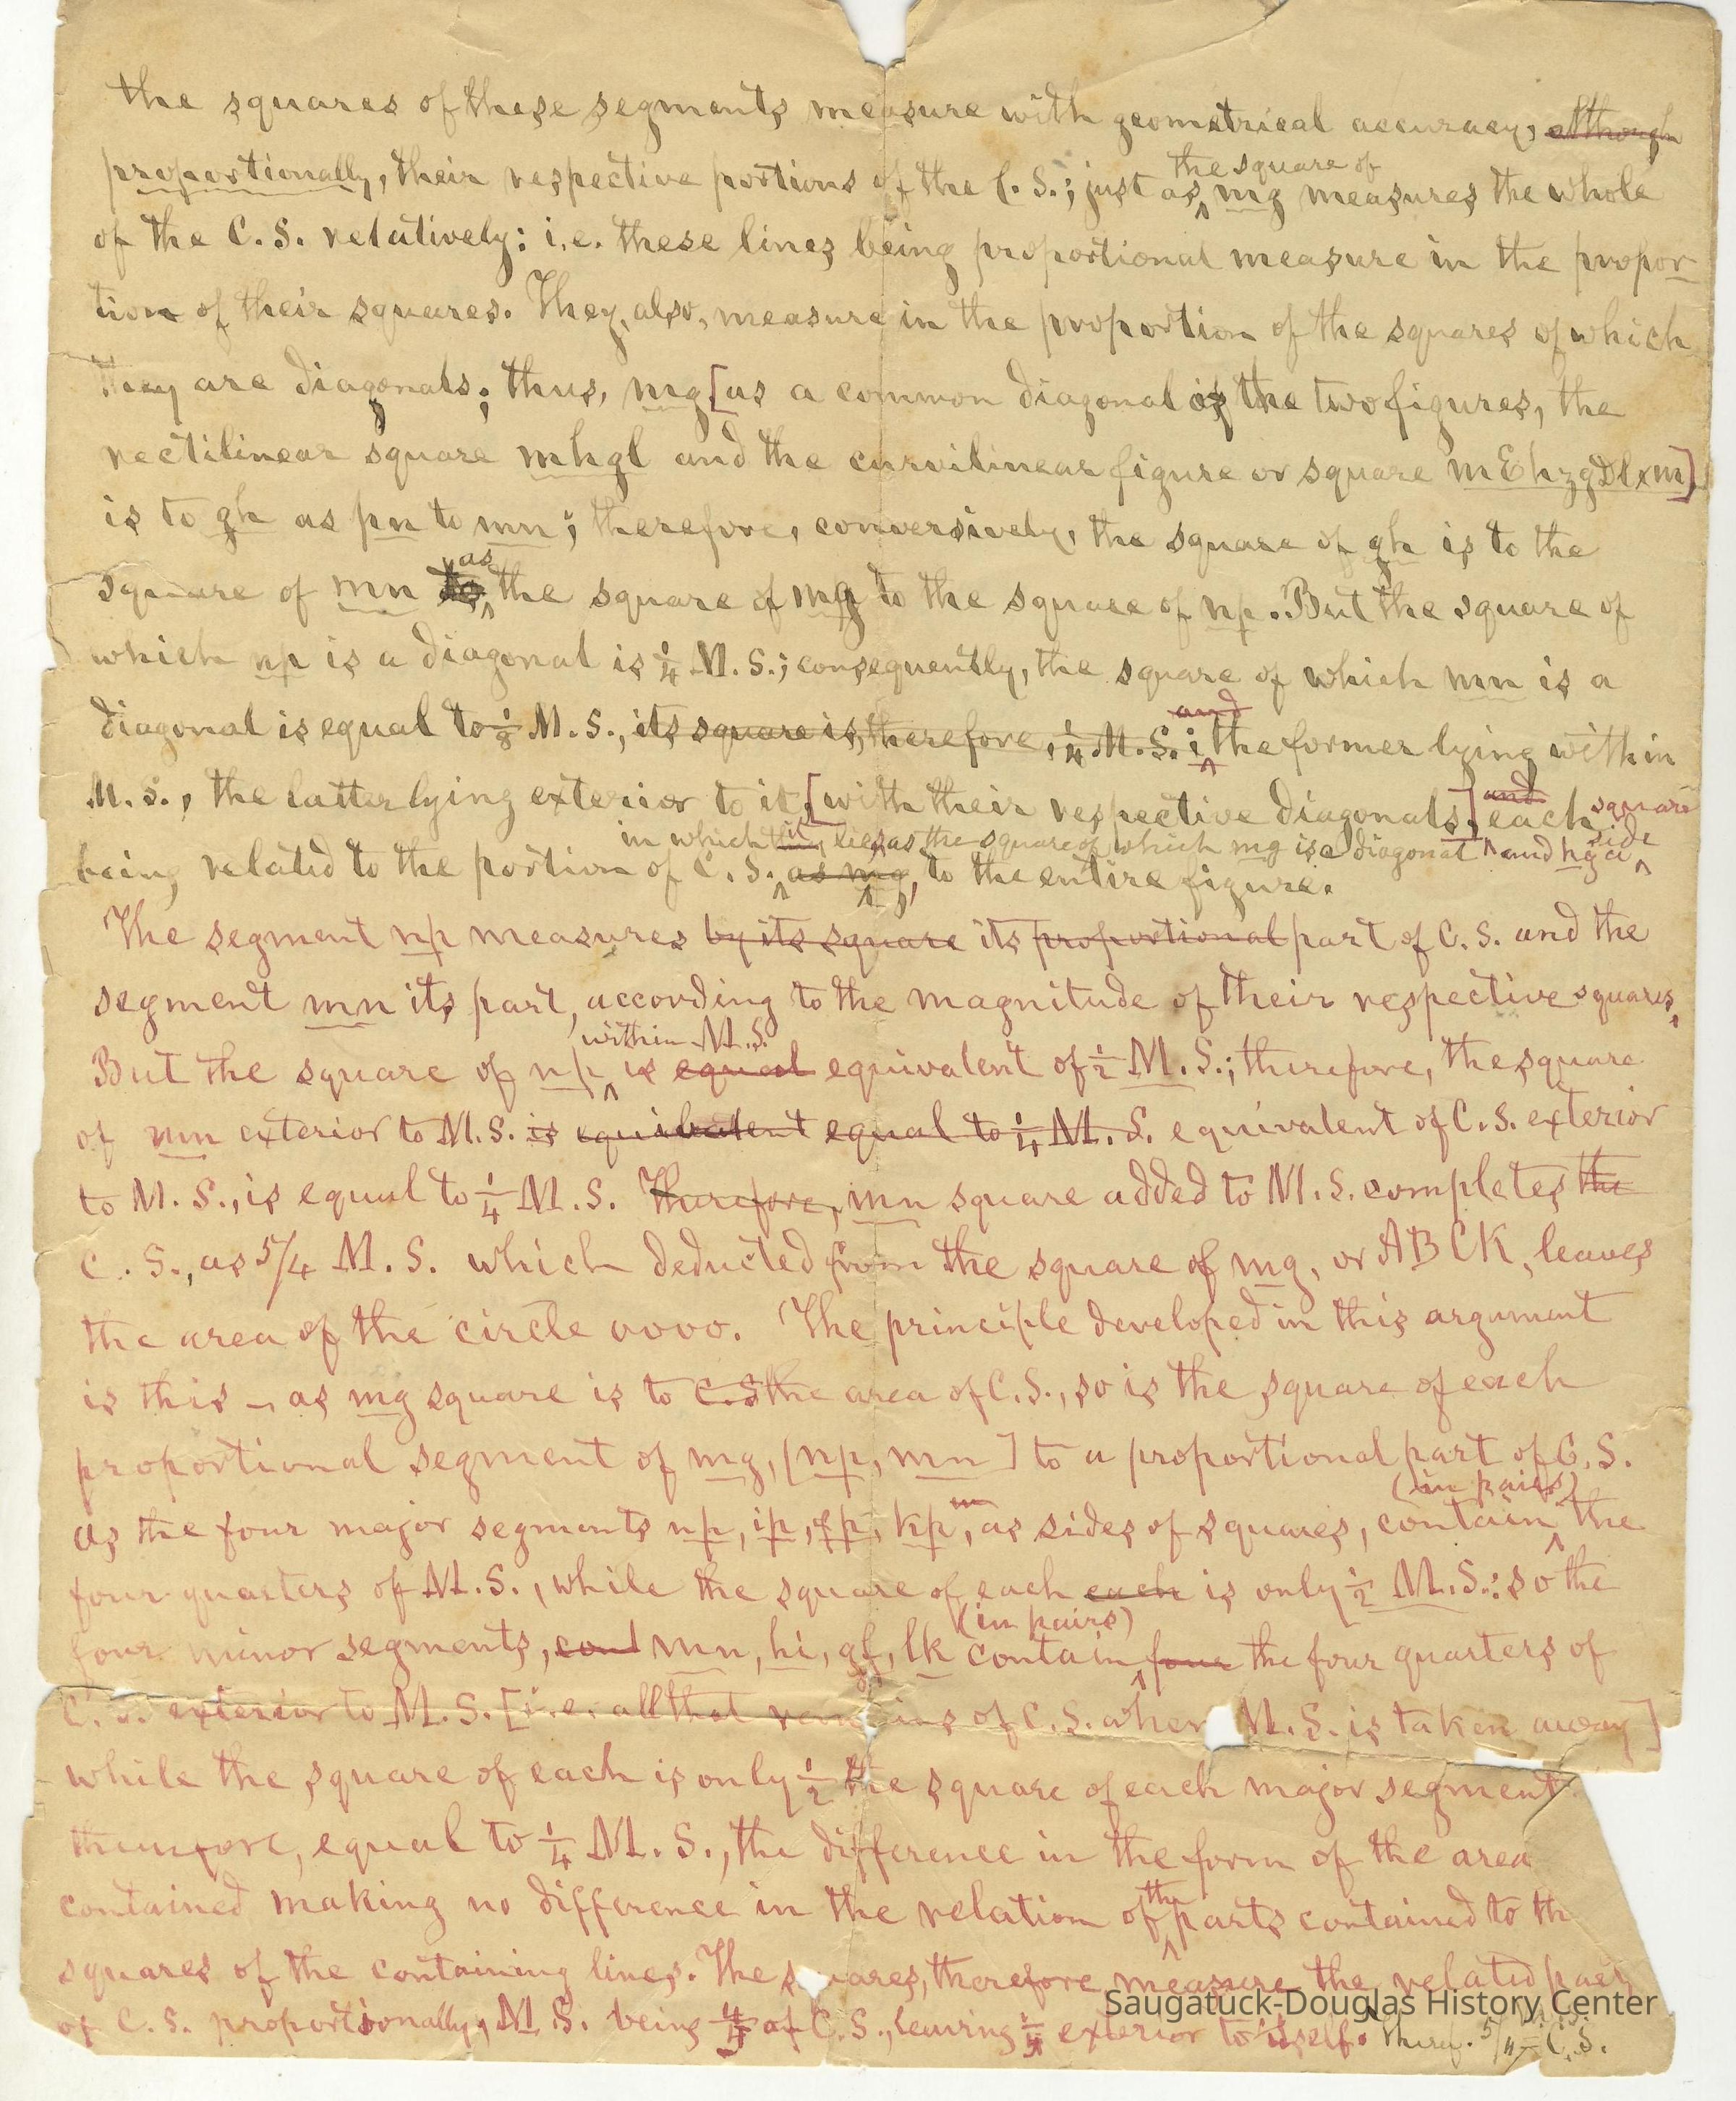 the squares of these segments measure with geometrical accuracy, although
proportionally, their respective portions of the C. S.; just as the square of mg measures the whole
of the C. S. relatively: i.e. these lines being proportional measure in the propor-
tion of their squares. They, also, measure in the proportion of the squares of which
they are diagonals; thus, mg [as a common diagonal of the two figures, the
rectilinear square mhgl and the curvilinear figure or square mEhzgDlxm]
is to gh as pn to mn; therefore, conversively, the square of gh is to the
square of mn as the square of mg to the square of np. But the square of
which np is a diagonal is 1/4 M. S.; consequently, the square of which mn is a
diagonal is equal to 1/8 M. S., its square is, therefore, 1/4 M. S.; and the former lying within
M. S., the latter lying exterior to it, [with their respective diagonals,] and each square
in which it lies as the square of which mg is a diagonal and hg a side
being related to the portion of C. S. as mg, to the entire figure.
The segment np measures by its square its proportional part of C. S. and the
segment mn its part, according to the magnitude of their respective squares,
within M. S.
But the square of np is equal equivalent of 1/2 M. S.; therefore, the square
of mn exterior to M. S. is equivalent equal to 1/4 M. S. equivalent of C. S. exterior
to M. S., is equal to 1/4 M. S. Therefore, mn square added to M. S. completes the
C. S., as 5/4 M. S. which deducted from the square of mg, or ABCK, leaves
the area of the circle oooo. The principle developed in this argument
is this –, as mg square is to C. S the area of C. S., so is the square of each
proportional segment of mg, [np, mn] to a proportional part of C. S.
(in pairs)
As the four major segments np, ip, fp, kp, as sides of squares, contain the
four quarters of M. S., while the square of each each is only 1/2 M. S.: so the
(in pairs)
four minor segments, cont mn, hi, gf, lk contain four the four quarters of
C. S. exterior to M. S. [i.e. all that remains of C. S. when M. S. is taken away]
while the square of each is only 1/2 the square of each major segment
therefore, equal to 1/4 M. S., the difference in the form of the area
contained making no difference in the relation of the parts contained to th
squares of the containing lines. The squares, therefore measure the related parts
of C. S. proportionally, M. S. being 4/5 of C. S., leaving 1/5 exterior to itself. Theref. 5/4 = C. S.
Saugatuck-Douglas History Center